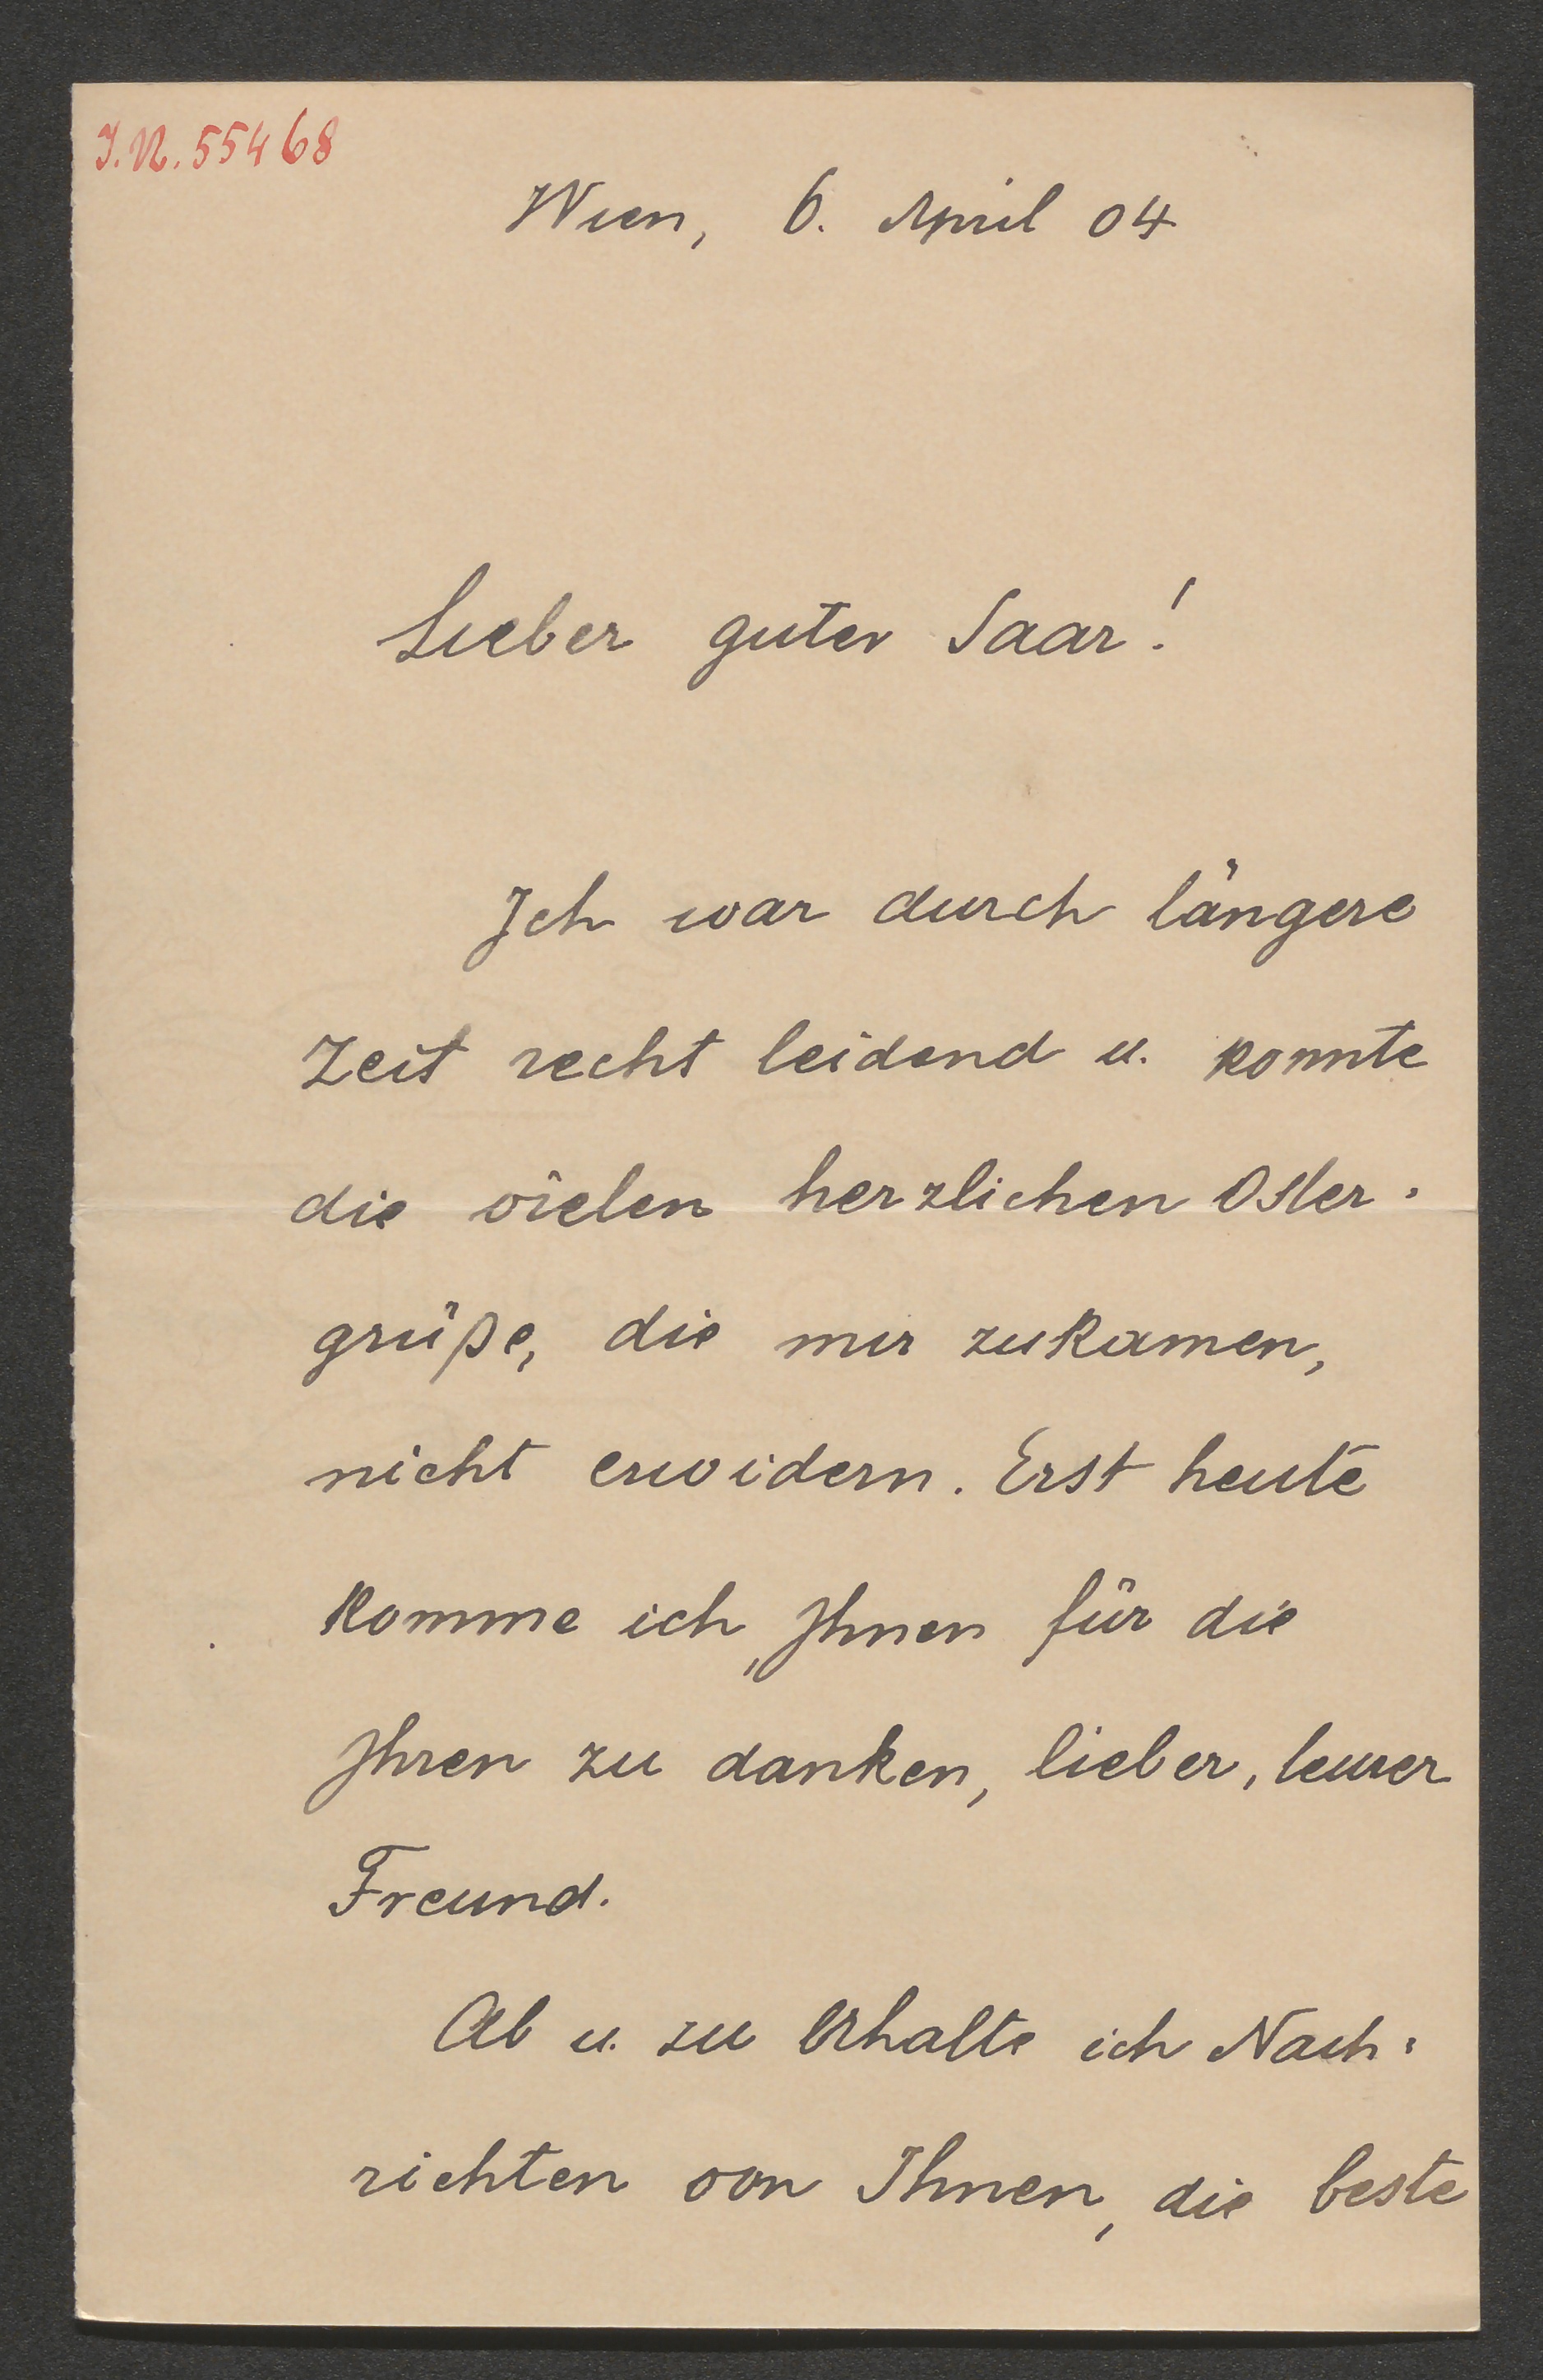 J.N. 55468
Wien, 6. April 04
Lieber guter Saar!
Ich war durch längere
Zeit recht leidend u. konnte
die vielen herzlichen Oster-
grüße, die mir zukamen,
nicht erwidern. Erst heute
komme ich, Ihnen für die
Ihren zu danken, lieber, teurer
Freund.
Ab u. zu erhalte ich Nach-
richten von Ihnen, die beste